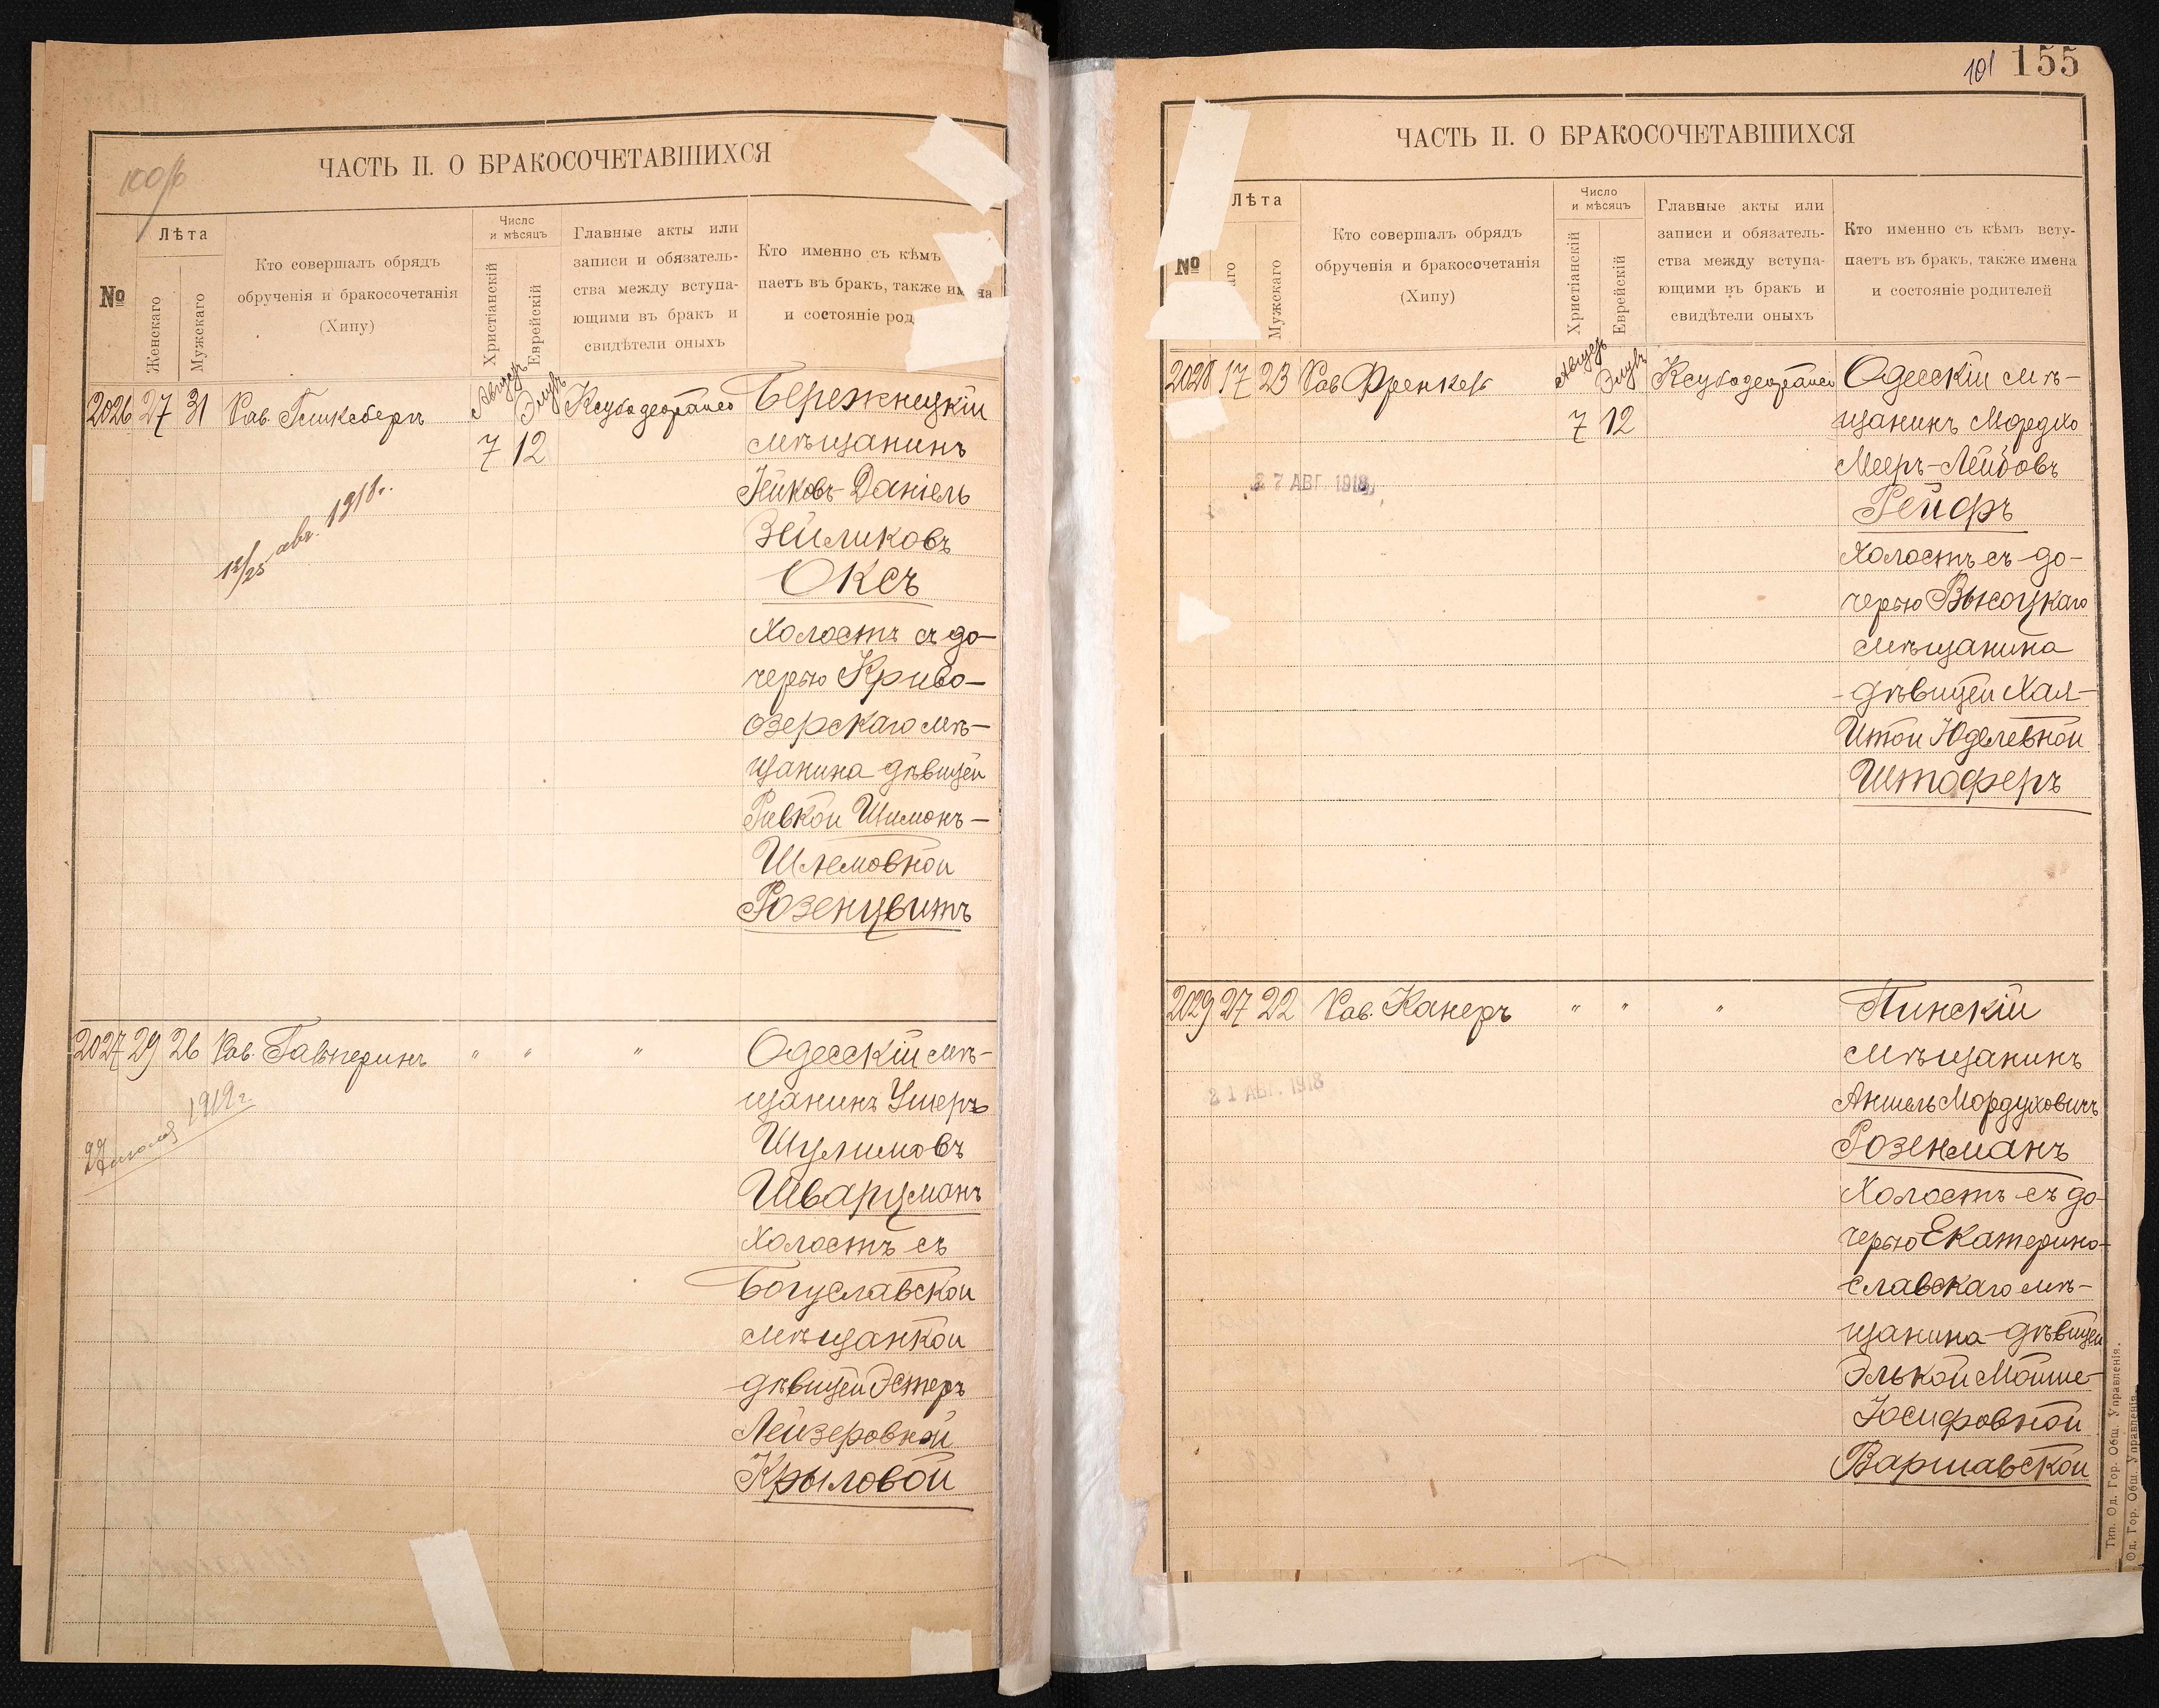 100/б
ЧАСТЬ II. О БРАКОСОЧЕТАВШИХСЯ
№
Лѣта
Женскаго
Мужскаго
Кто совершалъ обрядъ
обрученія и бракосочетанія
(Хипу)
Число
и мѣсяцъ
Христіанскій
Еврейскій
Главные акты или
записи и обязатель-
ства между вступа-
ющими въ бракъ и
свидѣтели оныхъ
Кто именно съ кѣмъ
паетъ въ бракъ, также имена
и состояніе род
2026 27 31 Рав. Гинксбергъ
Августъ Элулъ
7 12
Бережнецкій
мѣщанинъ
Яковъ-Даніель
Зейликовъ
Оксъ
Холостъ съ до-
черью Криво-
озерскаго мѣ-
щанина дѣвицей
Ривкой Шимонъ-
Шлемовной
Розенцвитъ
12/25 авг. 1918 г.
2027 29 26 Рав. Гальперинъ " " "
Одесскій мѣ-
щанинъ Ушеръ
Шулимовъ
Шварцманъ
Холостъ съ
Богуславской
мѣщанкой
дѣвицей Эстеръ
Лейзеровной
Крыловой
1919 г.
101 155
ЧАСТЬ II. О БРАКОСОЧЕТАВШИХСЯ
№
Лѣта
аго
Мужскаго
Кто совершалъ обрядъ
обрученія и бракосочетанія
(Хипу)
Число
и мѣсяцъ
Христіанскій
Еврейскій
Главные акты или
записи и обязатель-
ства между вступа-
ющими въ бракъ и
свидѣтели оныхъ
Кто именно съ кѣмъ всту-
паетъ въ бракъ, также имена
и состояніе родителей
2028 17 23 Рав. Френкель
Августъ Элулъ
7 12
Одесскій мѣ-
щанинъ Мордко
Мееръ-Лейбовъ
Рейфъ
Холостъ съ до-
черью Высоцкаго
мѣщанина
дѣвицей Хая-
Итой Юделевной
Штоферъ
27 АВГ. 1918
2029 27 22 Рав. Канеръ " " "
Пинскій
мѣщанинъ
Аншель Мордуховичъ
Розенманъ
Холостъ съ до-
черью Екатерино-
славскаго мѣ-
щанина дѣвицей
Элькой Мойше-
Іосифовной
Варшавской
21 АВГ. 1918
Тип. Од. Гор. Общ. Управленія.
Од. Гор. Общ. Управленія.